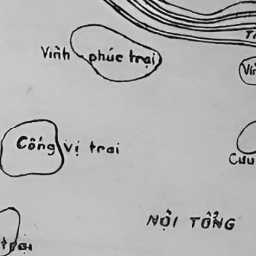 Vĩnh phúc trại
Cống vị trai
Cưu
NỘI TỔNG
trại